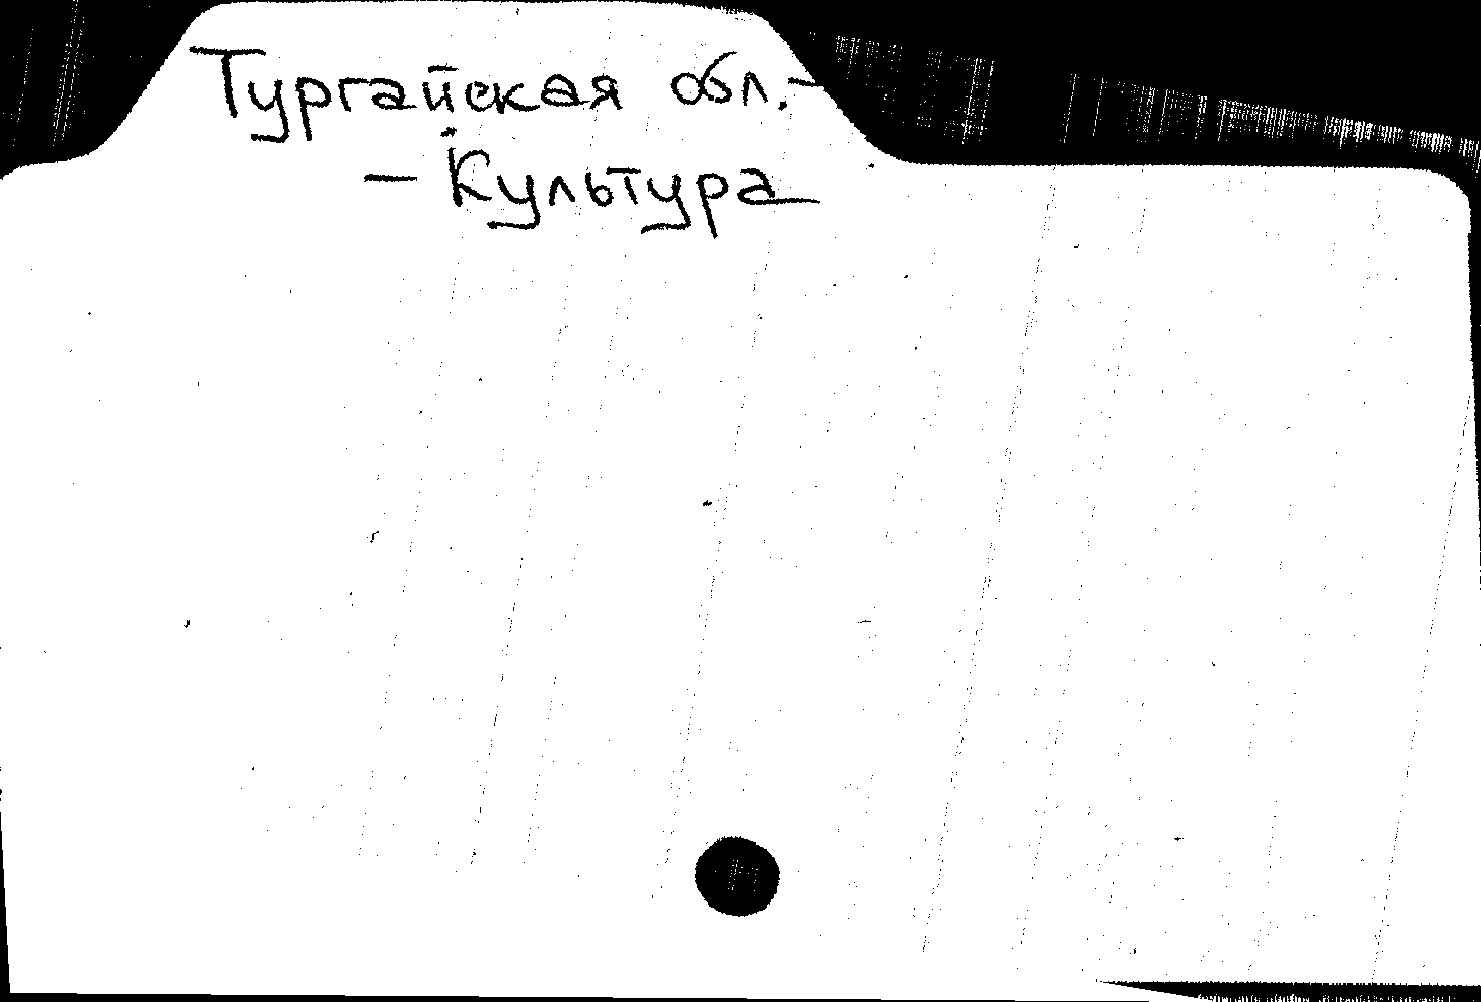 Тургайская обл.-
- Культура